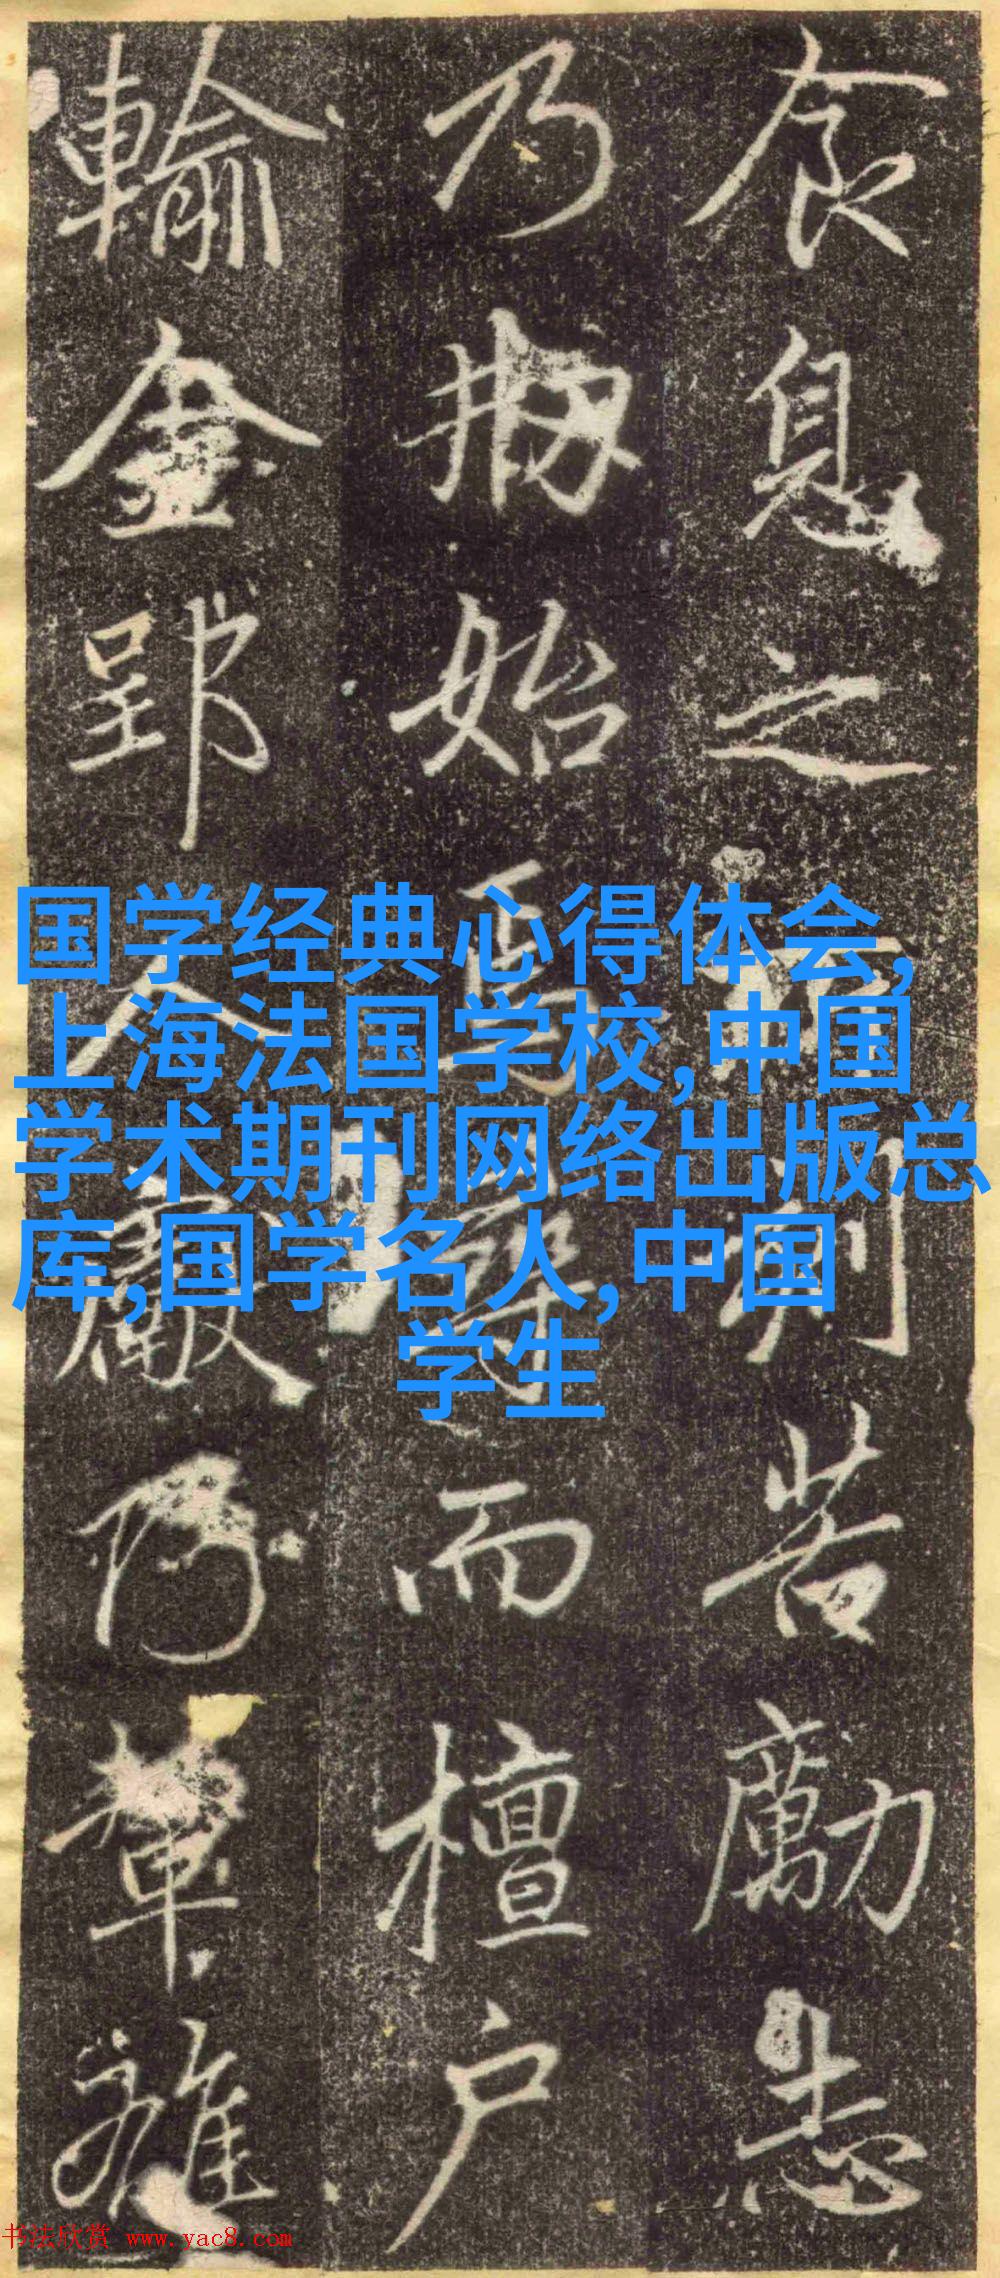 食息之刻苦勵志
乃始焉而檀户
輸金郢人
国学经典心得体会,
上海法国学校,中国
学术期刊网络出版总
库,国学名人,中国
学生
书法欣赏 www.yac8.com